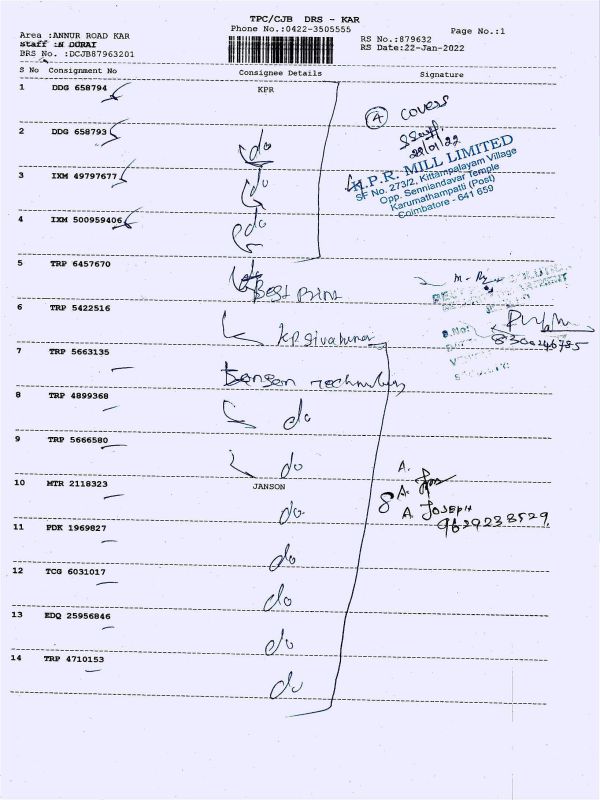 TPC/CJB DRS - KAR
Phone No.:0422-3505555
Page No.:1
Area :ANNUR ROAD KAR
staff :N DURAI
DRS No. :DCJB87963201
RS No.:879632
RS Date:22-Jan-2022
S No Consignment No Consignee Details Signature
1 DDG 658794 KPR
A covers
2 DDG 658793 do
22/01/22
K.P.R. MILL LIMITED
SF No. 273/2, Kittampalayam Village
Opp. Senniandavar Temple
Karumathampatti (Post)
Coimbatore - 641 659
3 IXM 49797677 do
4 IXM 500959406 do
5 TRP 6457670
Best Prins
6 TRP 5422516
7 TRP 5663135
8 TRP 4899368 do
9 TRP 5666580 do
10 MTR 2118323 JANSON
do
A.
8 A. JOSEPH
9629233529
11 PDK 1969827 do
12 TCG 6031017 do
13 EDQ 25956846 do
14 TRP 4710153 do